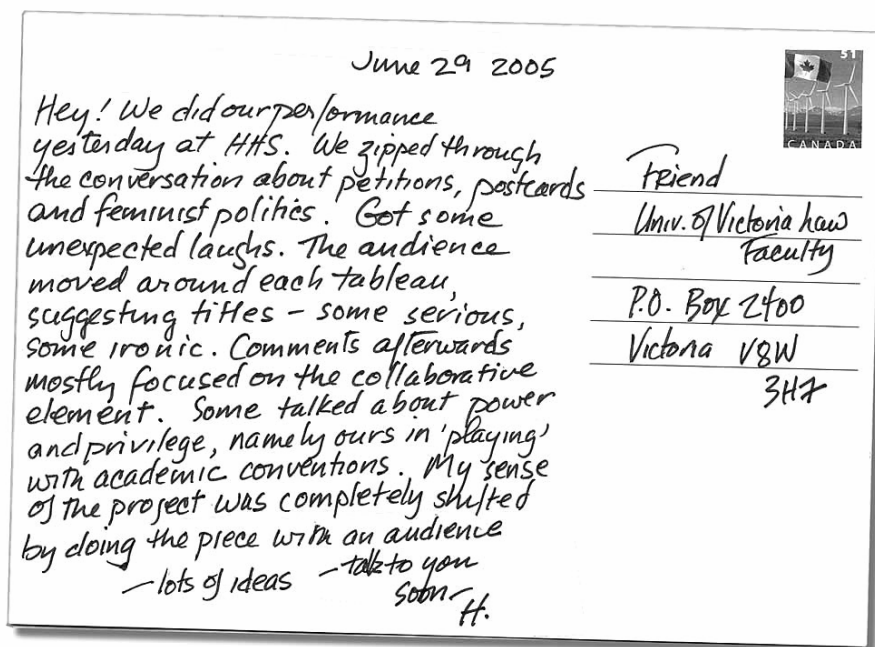 June 29 2005
Hey! We did our performance
yesterday at HHS. We zipped through
the conversation about petitions, postcards
and feminist politics. Got some
unexpected laughs. The audience
moved around each tableau,
suggesting titles – some serious,
some ironic. Comments afterwards
mostly focused on the collaborative
element. Some talked about power
and privilege, namely ours in 'playing'
with academic conventions. My sense
of the project was completely shifted
by doing the piece with an audience
– lots of ideas – talk to you
soon –
H.
51
CANADA
Friend
Univ. of Victoria Law
Faculty
P.O. Box 2400
Victoria V8W
3H7